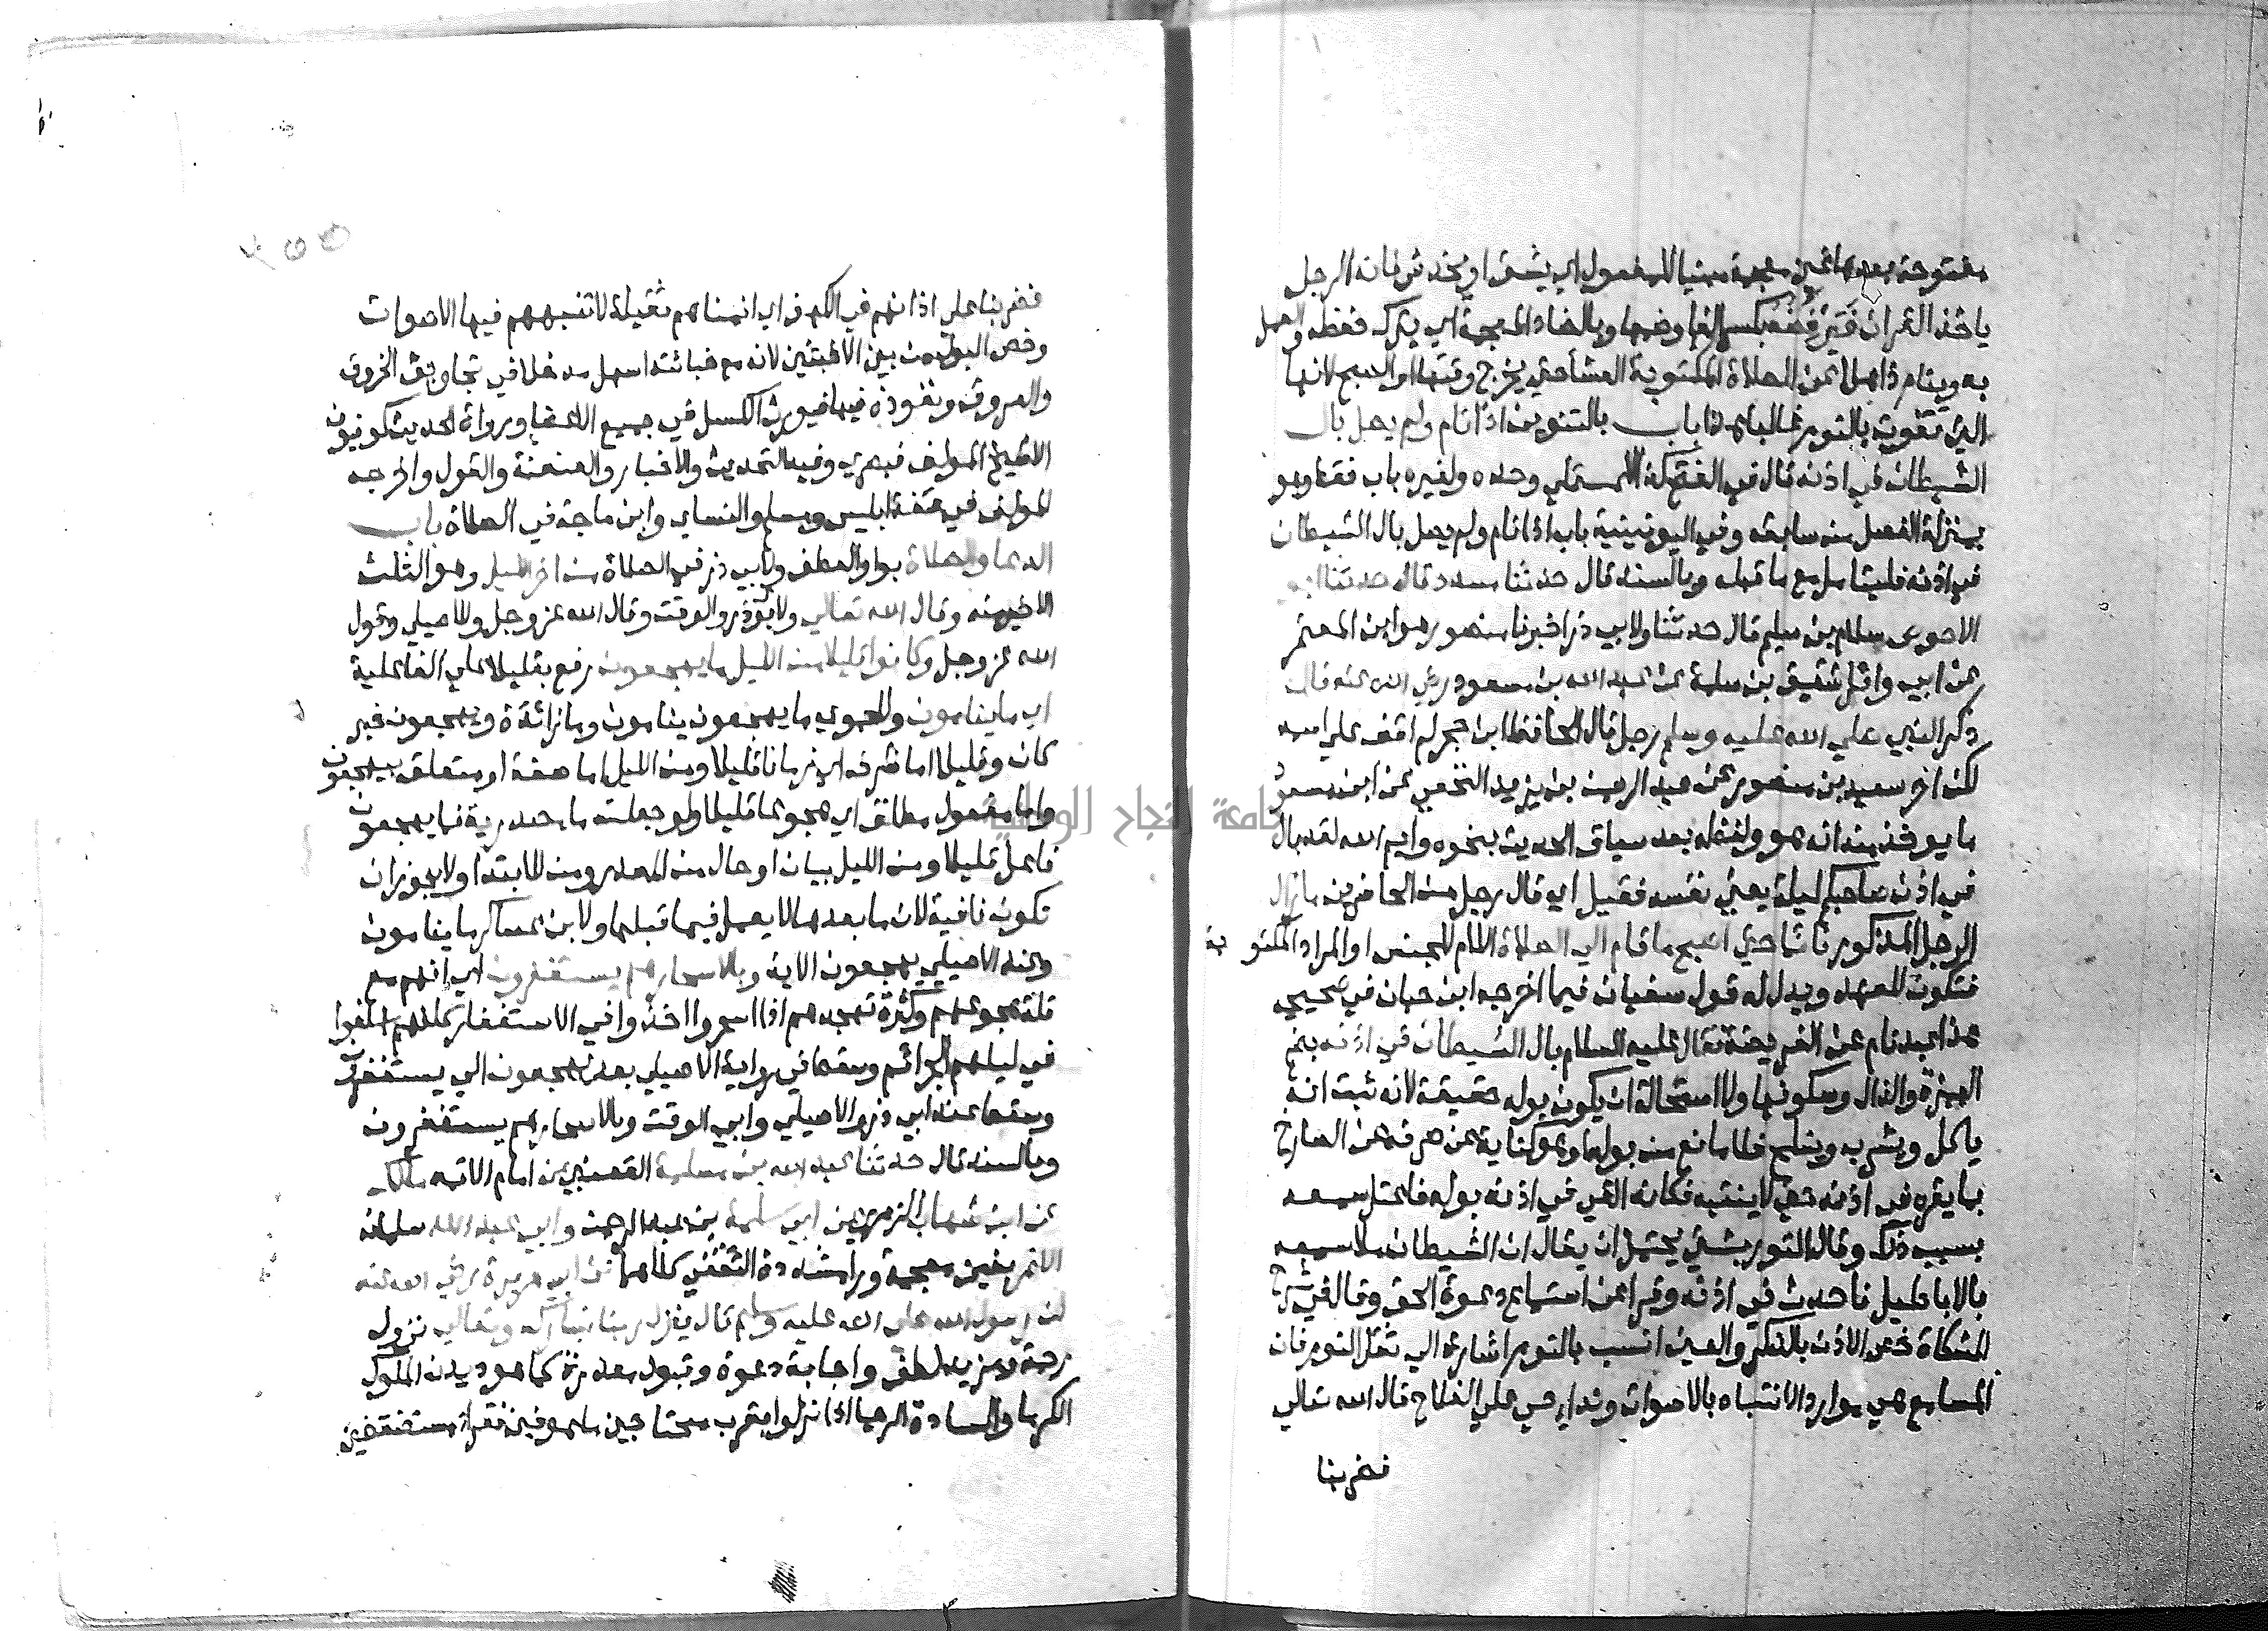 مفتوحة بعدها غين معجمة مبنيا للمفعول اي يشق او يخدش فانه الرجل
ياخذ القران فيرفضه بكسر الفا وضمها وبالضاد المعجمة اي يترك حفظه والعمل
به وينام ذاهلا عن الصلاة المكتوبة العشا حتي يخرج وقتها او الصبح لانها
التي تفوت بالنوم غالبا هذا باب بالتنوين اذا نام ولم يصل بال
الشيطان في اذنه قال في الفتح كذا للمستملي وحده ولغيره باب فقط وهو
بمنزلة الفصل من سابقه وفي اليونينية باب اذا نام ولم يصل بال الشيطان
في اذنه فليتامل مع ما قبله وبالسند قال حدثنا مسدد قال حدثنا ابو
الاحوص سلام بن سليم قال حدثنا ولابي ذر اخبرنا منصور هو ابن المعتمر
عن ابي وائل شقيق بن سلمة عن عبد الله بن مسعود رضي الله عنه قال
ذكر النبي صلي الله عليه وسلم رجل قال الحافظ ابن حجر لم اقف علي اسمه
لكن اخر سعيد بن منصور عن عبد الرحمن بن يزيد النخعي عن ابن مسعود
ما يوخذ منه انه هو ولفظه بعد سياق الحديث بنحوه وايم الله لقد بال
في اذن صاحبكم ليلة يعني نفسه فقيل اي قال رجل من الحاضرين ما زال
الرجل المذكور نائما حتي اصبح ما قام الي الصلاة اللام للجنس او المراد المكتوبة
فتكون للعهد ويدل له قول سفيان فيما اخرجه ابن حبان في صحيحه
هذا عبد نام عن الفريضة فقال عليه السلام بال الشيطان في اذنه بضم
الهمزة والذال وسكونها ولا استحالة ان يكون بوله حقيقة لانه ثبت انه
ياكل ويشرب وينكح فلا مانع من بوله او هو كناية عن صرفه عن الصارخ
بما يقره في اذنه حتي لا ينتبه فكانه القي في اذنه بوله فاعتل سمعه
بسبب ذلك وقال التوربشتي يحتمل ان يقال ان الشيطان ملا سمعه
بالاباطيل فاحدث في اذنه وقرا عن استماع دعوة الحق وقال في شرح
المشكاة خص الاذن بالذكر والعين انسب بالنوم اشارة الي ثقل النوم فان
المسامع هي موارد الانتباه بالاصوات ونداء حي علي الفلاح قال الله تعالي
فضربنا
فضربنا علي اذانهم في الكهف اي انمناهم ثقيلة لا تنبههم فيها الاصوات
وخص البول من بين الاخبثين لانه مع خباثته اسهل مدخلا في تجاويف الخروق
والعروق ونفوذه فيها فيورث الكسل في جميع الاعضا ورواة الحديث كوفيون
الا شيخ المولف فبصري وفيه التحديث والاخبار والعنعنة والقول واخرجه
المولف في صفة ابليس ومسلم والنساي وابن ماجة في الصلاة باب
الدعا والصلاة بواو العطف ولابي ذر في الصلاة من اخر الليل وهو الثلث
الاخير منه وقال الله تعالي ولابوي ذر والوقت وقال الله عز وجل وللاصيلي وقول
الله عز وجل وكانوا قليلا من الليل ما يهجعون رفع بقليلا علي الفاعلية
اي ما ينامون وللحموي ما يهجعون ينامون وما زائدة ويهجعون خبر
كان وقليلا اما ظرف اي زمانا قليلا ومن الليل اما صفة او متعلق بيهجعون
واما مفعول مطلق اي هجوعا قليلا ولو جعلت ما مصدرية فما يهجعون
فاعل قليلا ومن الليل بيان او حال من المصدر ومن للابتدا ولا يجوز ان
تكون نافية لان ما بعدها لا يعمل فيما قبلها ولابن عساكر ما ينامون
وعند الاصيلي يهجعون الاية وبالاسحار هم يستغفرون اي انهم مع
قلة هجوعهم وكثرة تهجدهم اذا اسحروا اخذوا في الاستغفار كانهم اسلفوا
في ليلهم الجرائم وسقط في رواية الاصيلي بعد يهجعون الي يستغفرون
وسقط عند ابي ذر والاصيلي وابي الوقت وبالاسحار هم يستغفرون
وبالسند قال حدثنا عبد الله بن مسلمة القعنبي عن امام الائمة مالك
عن ابن شهاب الزهري عن ابي سلمة بن عبد الرحمن وابي عبد الله سلمان
الاغر بغين معجمة ورا مشددة الثقفي كلاهما عن ابي هريرة رضي الله عنه
ان رسول الله صلي الله عليه وسلم قال ينزل ربنا تبارك وتعالي نزول
رحمة ومزيد لطف واجابة دعوة وقبول معذرة كما هو ديدن الملوك
الكرما والسادة الرحما اذا نزلوا بقرب محتاجين ملهوفين فقرا مستضعفين